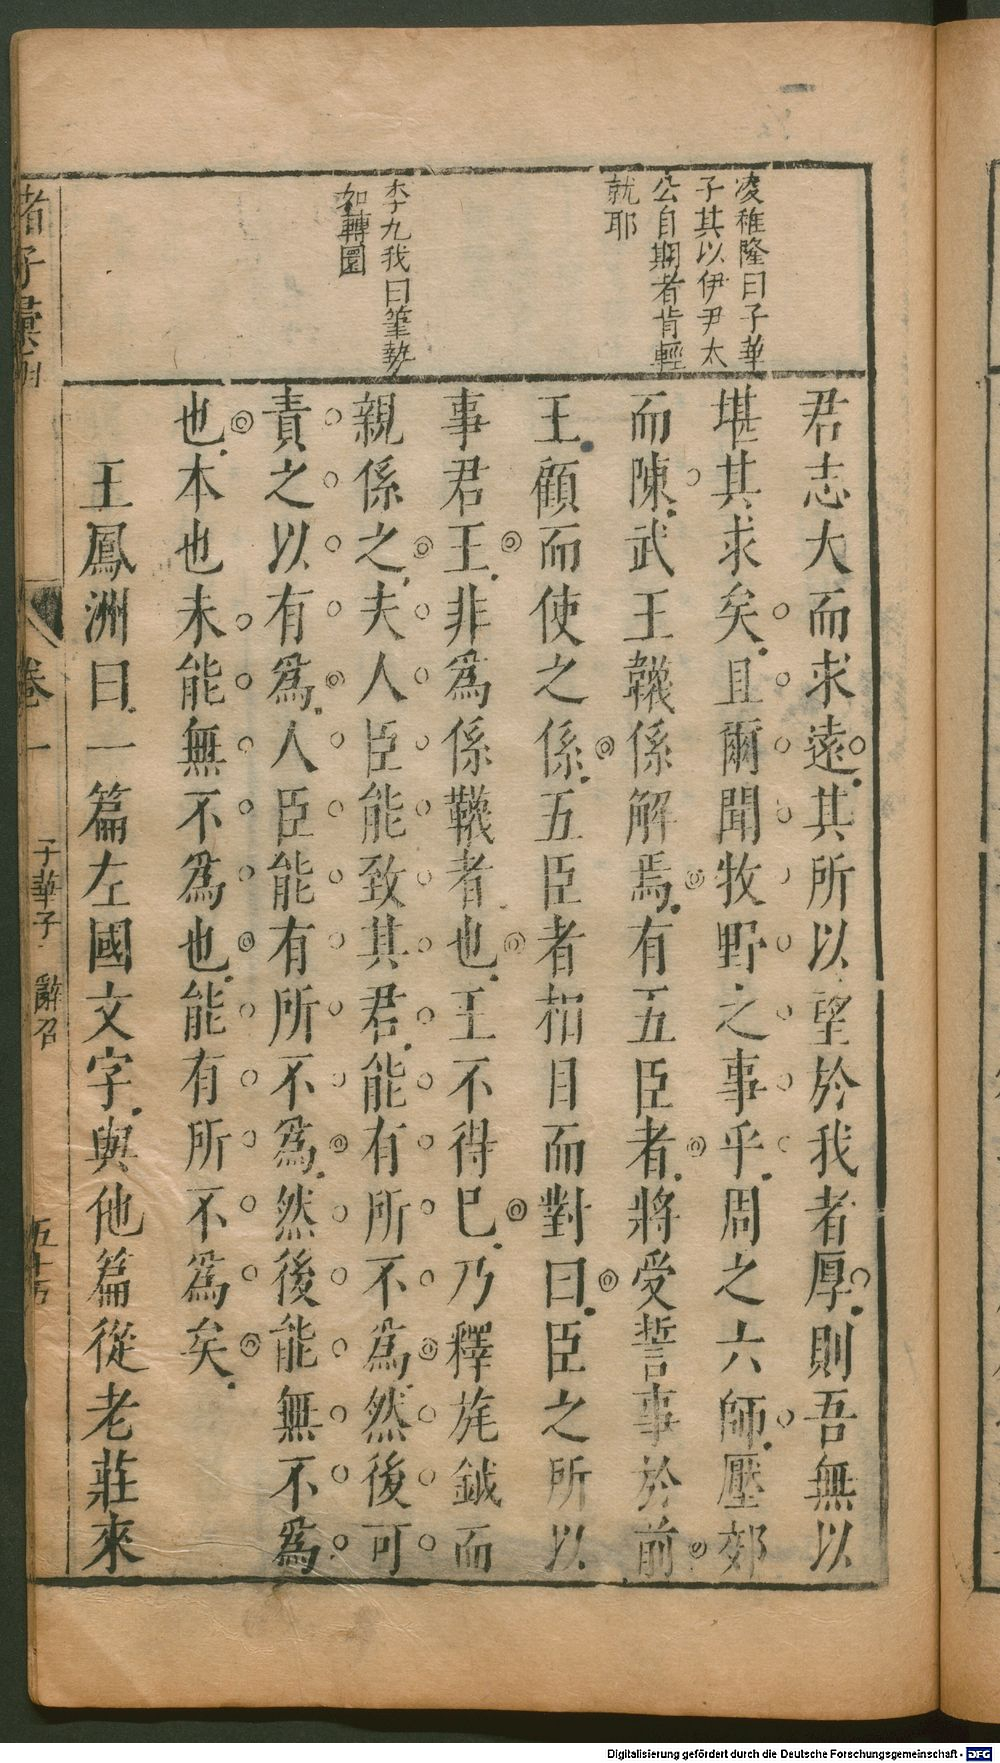 凌稚隆曰子華
子其以伊尹太
公自期者肯輕
就耶
李九我曰筆勢
如轉圜
君志大而求遠其所以望於我者厚則吾無以
堪其求矣且爾聞牧野之事乎周之六師壓郊
而陳武王韈係解焉有五臣者將受誓事於前
王顧而使之係五臣者相目而對曰臣之所以
事君王非為係韈者也王不得已乃釋旄鉞而
親係之夫人臣能致其君能有所不為然後可
責之以有為人臣能有所不為然後能無不為
也本也未能無不為也能有所不為矣
王鳳洲曰一篇左國文字與他篇從老莊來
卷一
子華子
辭召
五十五
Digitalisierung gefördert durch die Deutsche Forschungsgemeinschaft - DFG